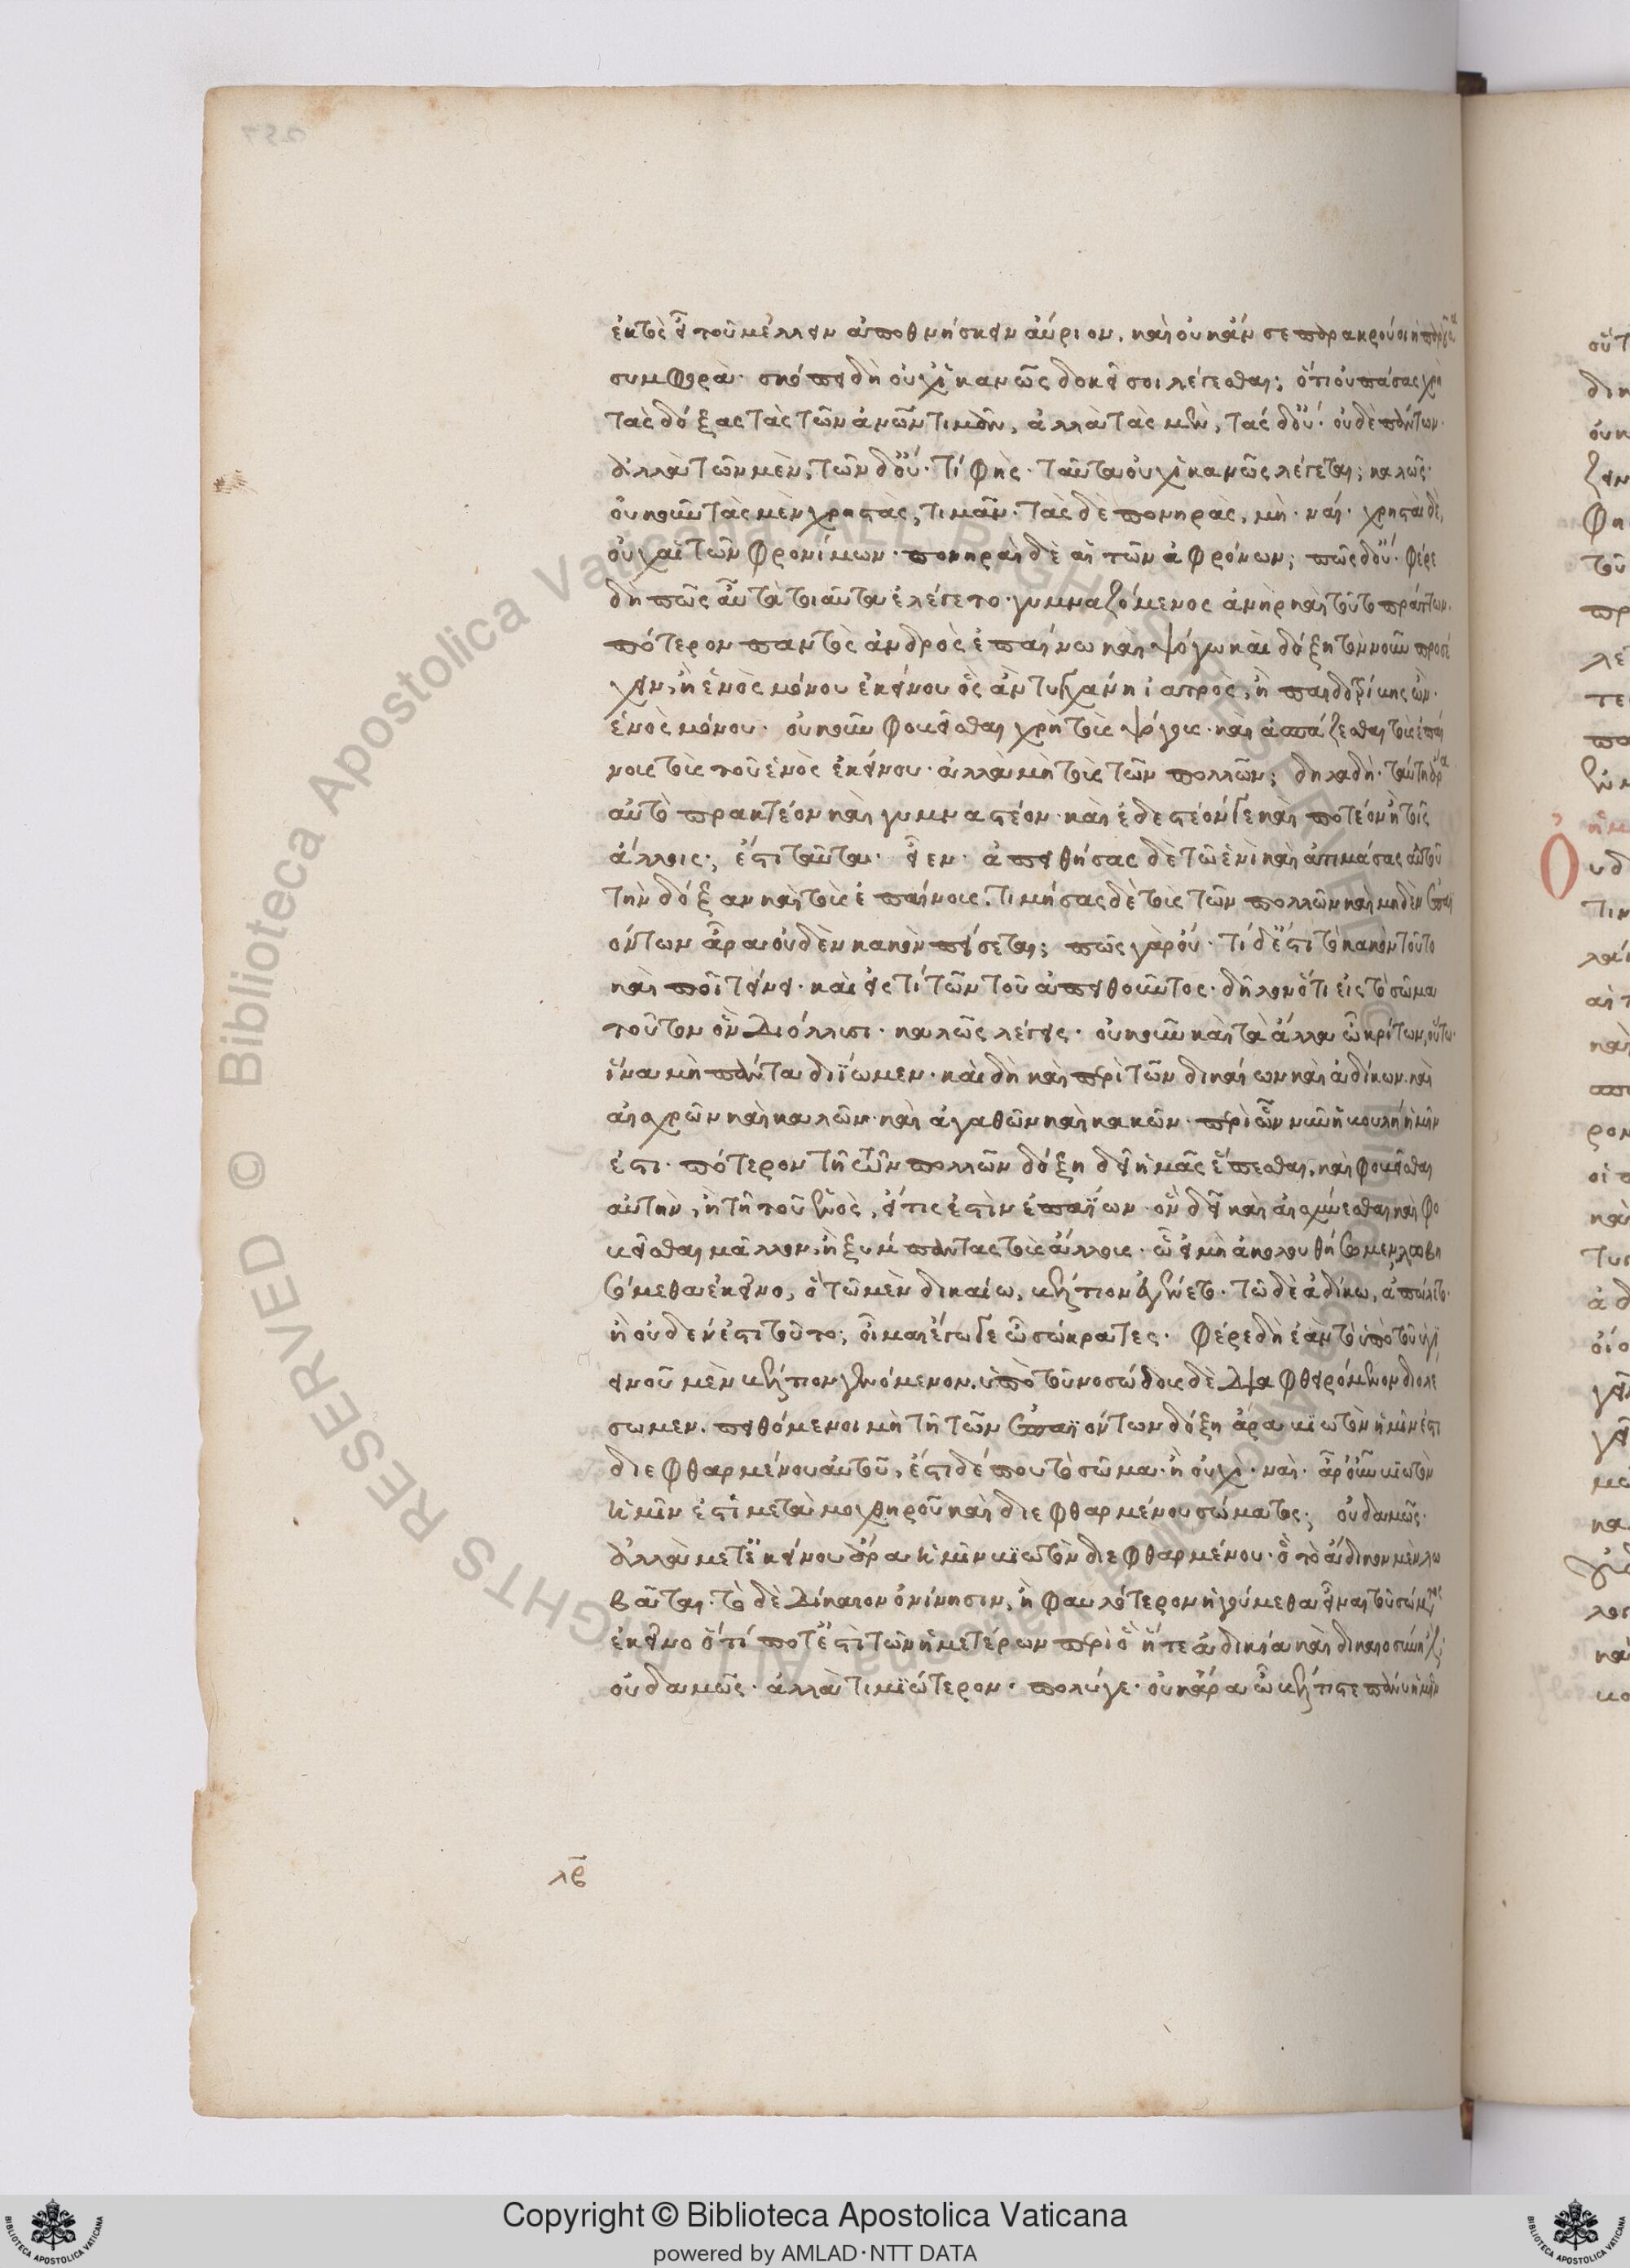 ἐκτὸς εἶ τοῦ μέλλειν ἀποθνήσκειν αὔριον. καὶ οὐκ ἄν σε παρακρούσιη παροῦσα
συμφορά· σκόπει δὴ οὐχ ἱκανῶς δοκεῖ σοι λέγεσθαι; ὅτι οὐ πάσας χρὴ
τὰς δόξας τὰς τῶν ἀνῶν τιμᾶν, ἀλλὰ τὰς μὲν, τὰς δ' οὔ· οὐδὲ πάντων·
ἀλλὰ τῶν μὲν, τῶν δ' οὔ· τί φής· ταῦτα οὐχ ἱκανῶς λέγεται; καλῶς·
οὐκοῦν τὰς μὲν χρηστὰς, τιμᾶν· τὰς δὲ πονηρὰς, μή· ναί· χρησταὶ δὲ,
οὐχ αἱ τῶν φρονίμων· πονηραὶ δὲ αἱ τῶν ἀφρόνων; πῶς δ' οὔ· φέρε
δὴ πῶς αὖ τὰ τοιαῦτα ἐλέγετο· γυμναζόμενος ἀνὴρ καὶ τοῦτο πράττων.
πότερον παντὸς ἀνδρὸς ἐπαίνω καὶ ψόγω καὶ δόξη τὸν νοῦν προσέ
χειν, ἢ ἑνὸς μόνου ἐκείνου ὃς ἂν τυγχάνη ἰατρὸς, ἢ παιδοτρίβης ὤν·
ἑνὸς μόνου· οὐκοῦν φοβεῖσθαι χρὴ τοὺς ψόγους· καὶ ἀσπάζεσθαι τοὺς ἐπαί
νους τοὺς τοῦ ἑνὸς ἐκείνου· ἀλλὰ μὴ τοὺς τῶν πολλῶν; δηλαδή· ταύτη ἄρα
αὐτῶ πρακτέον καὶ γυμναστέον· καὶ ἐδεστέον γε καὶ ποτέον ἢ τοῖς
ἄλλοις; ἔστι ταῦτα· εἶεν· ἀπειθήσας δὲ τῶ ἑνὶ καὶ ἀτιμάσας αὐτοῦ
τὴν δόξαν καὶ τοὺς ἐπαίνους. τιμήσας δὲ τοὺς τῶν πολλῶν καὶ μηδὲν ἐπαϊ
όντων ἆρα οὐδὲν κακὸν πείσεται; πῶς γὰρ οὔ· τί δ' ἔστι τὸ κακὸν τοῦτο
καὶ ποῖ τείνει· καὶ εἰς τί τῶν τοῦ ἀπειθοῦντος· δῆλον ὅτι εἰς τὸ σῶμα
τοῦτον ὃν διόλλυσι· καλῶς λέγεις· οὐκοῦν καὶ τὰ ἄλλα ὦ κρίτων, οὕτω·
ἵνα μὴ πάντα διΐωμεν· καὶ δὴ καὶ περὶ τῶν δικαίων καὶ ἀδίκων· καὶ
αἰσχρῶν καὶ καλῶν· καὶ ἀγαθῶν καὶ κακῶν· περὶ ὧν νῦν ἡ βουλὴ ἡμῖν
ἐστι· πότερον τῆ τῶν πολλῶν δόξη δεῖ ἡμᾶς ἕπεσθαι, καὶ φοβεῖσθαι
αὐτὴν, ἢ τῆ τοῦ ἑνὸς, εἴ τις ἐστὶν ἐπαΐων· ὃν δεῖ καὶ αἰσχύνεσθαι καὶ φο
βεῖσθαι μᾶλλον, ἢ ξύμπαντας τοὺς ἄλλους· ὧ εἰ μὴ ἀκολουθήσομεν, λωβη
σόμεθα ἐκεῖνο, ὃ τῶ μὲν δικαίω, βέλτιον ἐγίνετο· τῶ δὲ ἀδίκω, ἀπώλετο·
ἢ οὐδέν ἐστι τοῦτο; οἶμαι ἔγωγε ὦ σώκρατες· φέρε δὴ ἐὰν τὸ ὑπὸ τοῦ ὑγι
εινοῦ μὲν βέλτιον γινόμενον. ὑπὸ τοῦ νοσώδους δὲ διαφθειρόμενον διολέ
σωμεν. πειθόμενοι μὴ τῆ τῶν ἐπαϊόντων δόξη ἆρα βιωτὸν ἡμῖν ἐστι
διεφθαρμένου αὐτοῦ, ἔστι δέ που τὸ σῶμα· ἢ οὐχί· ναί· ἆρ' οὖν βιωτὸν
ἡμῖν ἐστὶ μετὰ μοχθηροῦ καὶ διεφθαρμένου σώματος; οὐδαμῶς·
ἀλλὰ μετ' ἐκείνου ἆρα ἡμῖν βιωτὸν διεφθαρμένου· ὃ τὸ ἄδικον μὲν λω
βᾶται· τὸ δὲ δίκαιον ὀνίνησιν, ἢ φαυλότερον ἡγούμεθα εἶναι τοῦ σώματος
ἐκεῖνο ὅ τί ποτ' ἐστὶ τῶν ἡμετέρων περὶ ὃ ἥ τε ἀδικία καὶ δικαιοσύνη ἐστί;
οὐδαμῶς· ἀλλὰ τιμιώτερον· πολύ γε· οὐκ ἄρα ὦ βέλτιστε πάνυ ἡμῖν
λβ
Ο
Copyright © Biblioteca Apostolica Vaticana
powered by AMLAD·NTT DATA